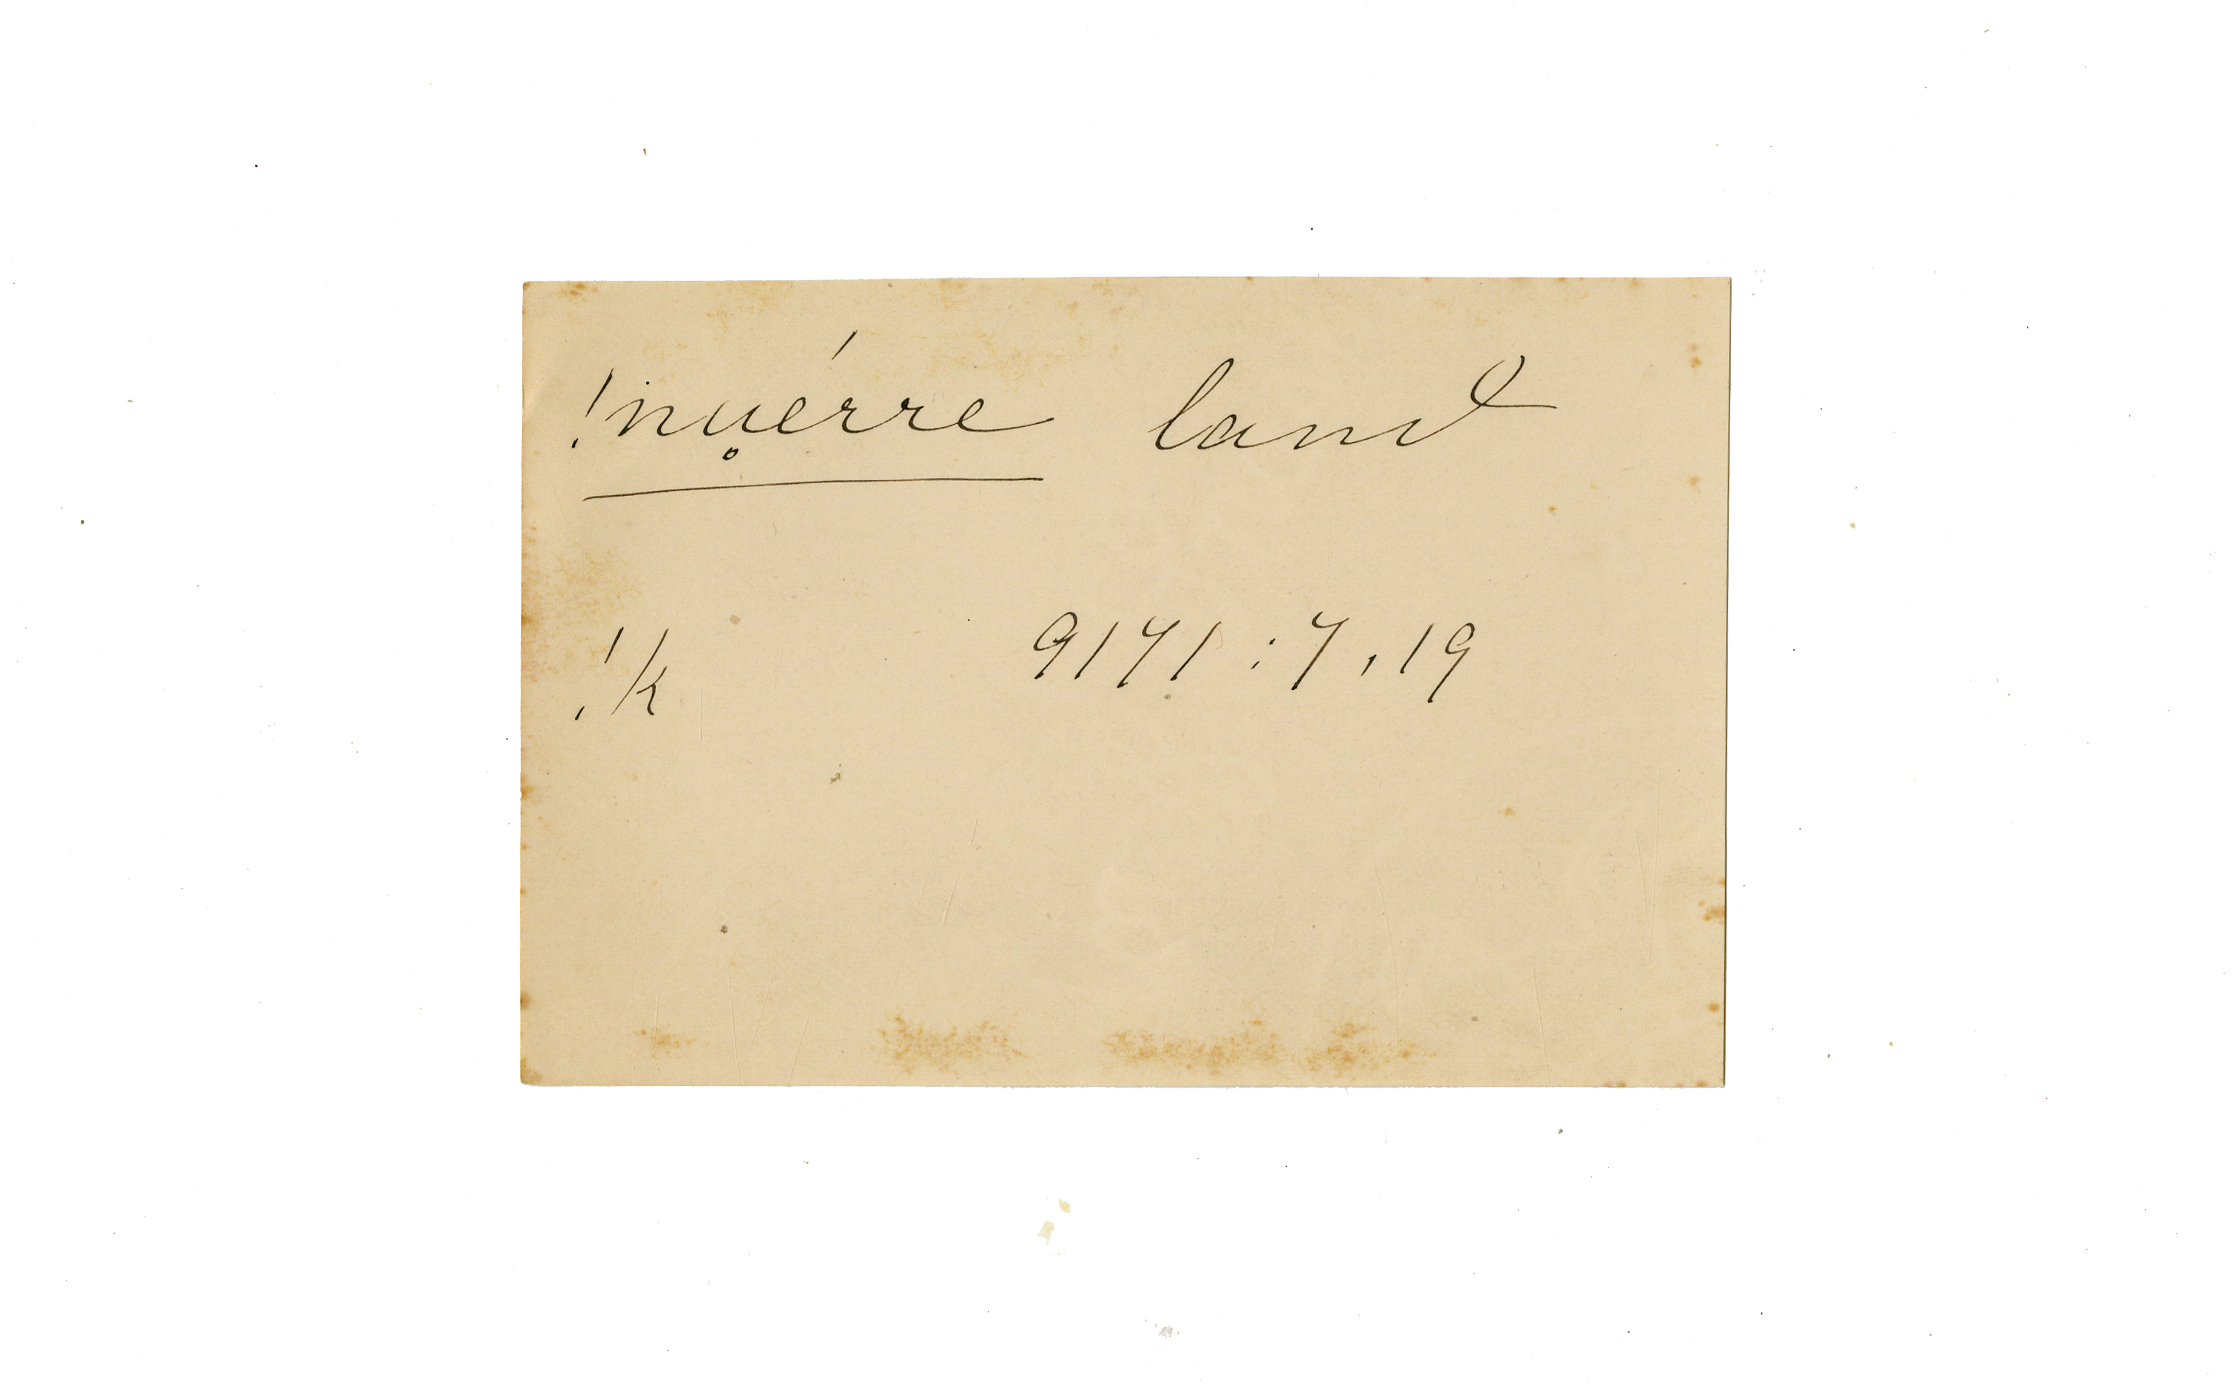 !nu̥érre land
!k 9171:7,19